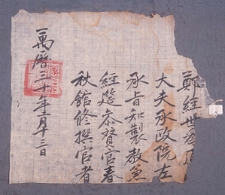 鄭經世爲
大夫承政院左
承旨知製敎兼
經筵參贊官春
秋館修撰官者
萬曆年月十三日